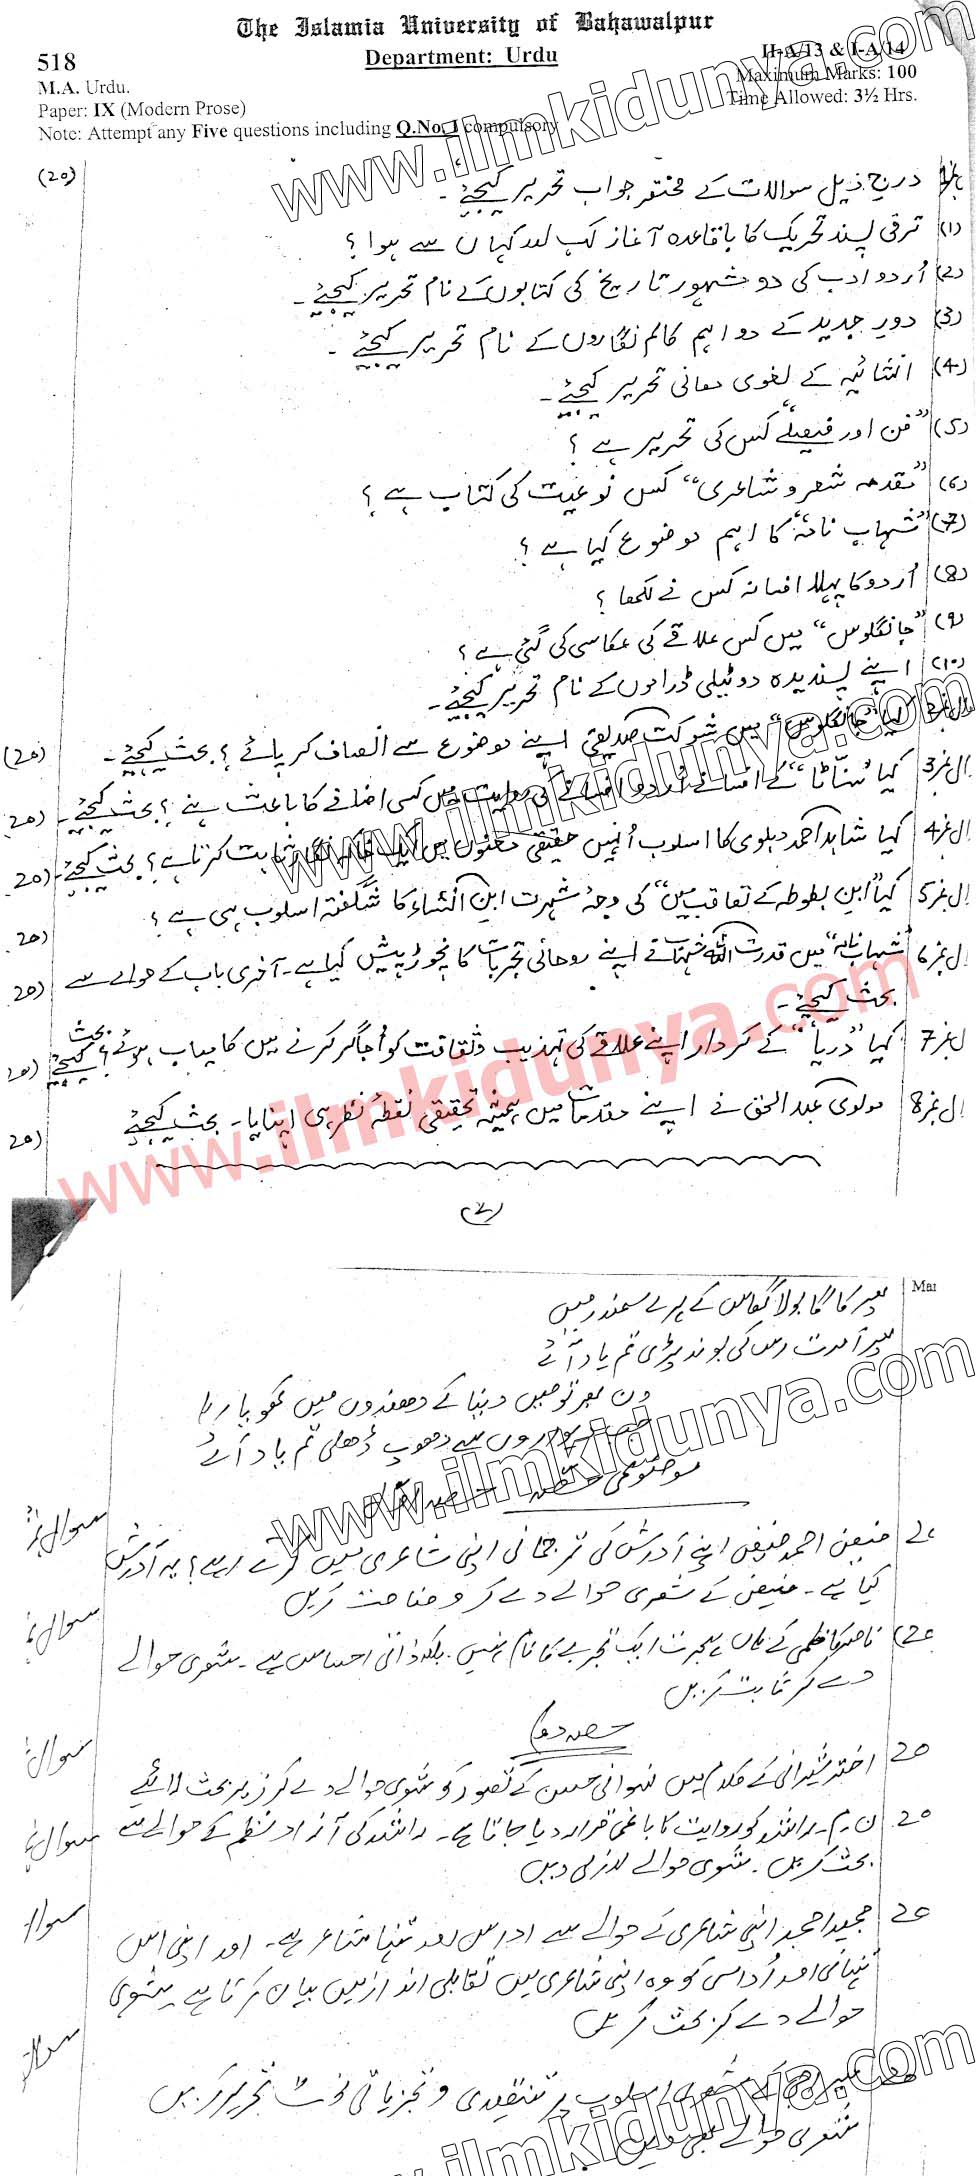 The Islamia University of Bahawalpur
518
Department: Urdu
II-A/13 & I-A/14
M.A. Urdu.
Maximum Marks: 100
Paper: IX (Modern Prose)
Time Allowed: 3½ Hrs.
Note: Attempt any Five questions including Q.No. 1 compulsory
www.ilmkidunya.com
درج ذیل سوالات کے مختصر جواب تحریر کیجئے۔ (20)
(1) ترقی پسند تحریک کا باقاعدہ آغاز کب اور کہاں سے ہوا؟
(2) اُردو ادب کی دو مشہور تاریخ کی کتابوں کے نام تحریر کیجئے۔
(3) دورِ جدید کے دو اہم کالم نگاروں کے نام تحریر کیجئے۔
(4) انشائیہ کے لغوی معانی تحریر کیجئے۔
(5) "فن اور فیصلے" کس کی تحریر ہے؟
(6) "مقدمہ شعر و شاعری" کس نوعیت کی کتاب ہے؟
(7) "شہاب نامہ" کا اہم موضوع کیا ہے؟
(8) اُردو کا پہلا افسانہ کس نے لکھا؟
(9) "جانگلوس" میں کس علاقے کی عکاسی کی گئی ہے؟
(10) اپنے پسندیدہ دو ٹیلی ڈراموں کے نام تحریر کیجئے۔
کیا "جانگلوس" میں شوکت صدیقی اپنے موضوع سے انصاف کر پائے؟ بحث کیجئے۔ (20)
ال نمبر 3 کیا "سناٹا" کے افسانے اُردو افسانے کی روایت میں کسی اضافے کا باعث بنے؟ بحث کیجئے۔ (20)
ال نمبر 4 کیا شاہد احمد دہلوی کا اسلوب اُنہیں حقیقی معنوں میں ایک خاکہ نگار ثابت کرتا ہے؟ بحث کیجئے۔ (20)
ال نمبر 5 کیا "ابنِ بطوطہ کے تعاقب میں" کی وجۂ شہرت ابنِ انشاء کا شگفتہ اسلوب ہی ہے؟ (20)
ال نمبر 6 "شہاب نامہ" میں قدرت اللہ شہاب نے اپنے روحانی تجربات کا نچوڑ پیش کیا ہے۔ آخری باب کے حوالے سے (20)
بحث کیجئے۔
ل نمبر 7 کیا "دریا" کے کردار اپنے علاقے کی تہذیب و ثقافت کو اُجاگر کرنے میں کامیاب ہوئے؟ بحث کیجئے (20)
ال نمبر 8 مولوی عبدالحق نے اپنے مقدمات میں ہمیشہ تحقیقی نقطۂ نظر ہی اپنایا۔ بحث کیجئے (20)
www.ilmkidunya.com
Mar
پھر کاگا بولا گھاس کے ہرے سمندر میں
پھر امرت رس کی بوند پڑی تم یاد آئے
دن بھر تو میں دنیا کے دھندوں میں کھویا رہا
جب دیواروں سے دھوپ ڈھلی تم یاد آئے
www.ilmkidunya.com
فیض احمد فیض اپنے آدرش کی ترجمانی اپنی شاعری میں کرتے رہے؟ یہ آدرش
کیا ہے۔ فیض کے شعری حوالے دے کر وضاحت کریں
ناصر کاظمی کے ہاں ہجرت ایک تجربے کا نام نہیں۔ بلکہ ذاتی احساس ہے۔ شعری حوالے
دے کر ثابت کریں
حصہ دوم
اختر شیرانی کے کلام میں نسوانی حسن کے تصور کو شعری حوالے دے کر زیرِ بحث لائیے
ن۔م۔راشد کو روایت کا باغی قرار دیا جاتا ہے۔ راشد کی آزاد نظم کے حوالے سے
بحث کریں۔ شعری حوالے لازمی دیں
مجید امجد اپنی شاعری کے حوالے سے اداس اور تنہا شاعر ہے۔ اور اپنی اس
تنہائی اور اُداسی کو وہ اپنی شاعری میں تقابلی انداز میں بیان کرتا ہے۔ شعری
حوالے دے کر بحث کریں
کے شعری اسلوب پر تنقیدی و تجزیاتی نوٹ تحریر کریں
شعری حوالے بھی دیں
www.ilmkidunya.com